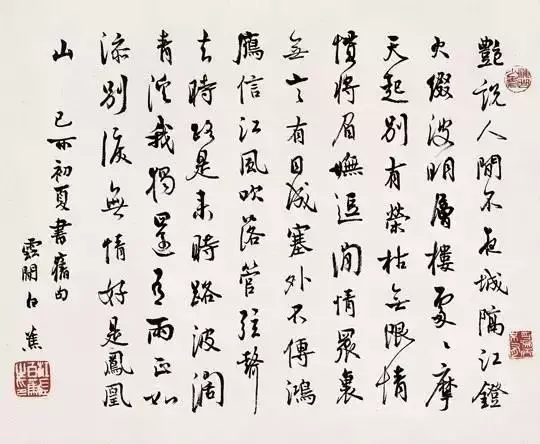 豔說人間不夜城隔江鐙
火綴波明層樓處〻摩
天起別有榮枯無限情
慣將眉嫵逗閒情眾裏
無言有目成塞外不傳鴻
鴈信江風吹落管弦聲
去時路是來時路波濶
青溪我獨還有雨正如
添別淚無情好是鳳凰
山 己亥初夏書舊句
雲間白蕉